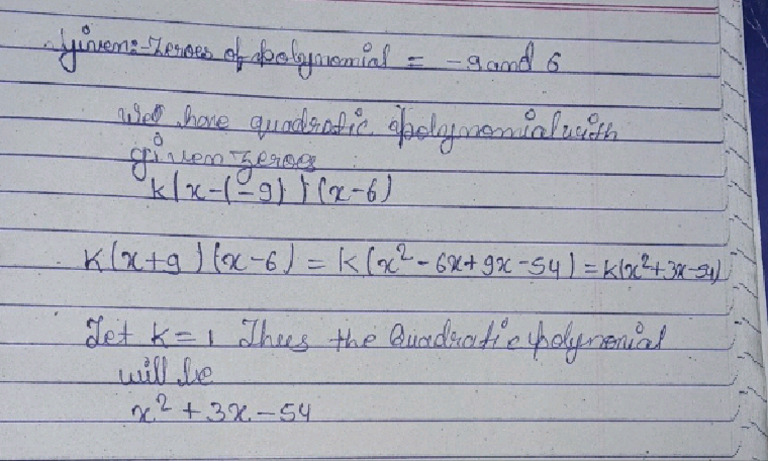 Given:- Zeroes of polynomial = -9 and 6
We have quadratic polynomial with
given zeroes
k(x-(-9))(x-6)
k(x+9)(x-6) = k(x²-6x+9x-54) = k(x²+3x-54)
Let k=1 Thus the Quadratic polynomial
will be
x²+3x-54